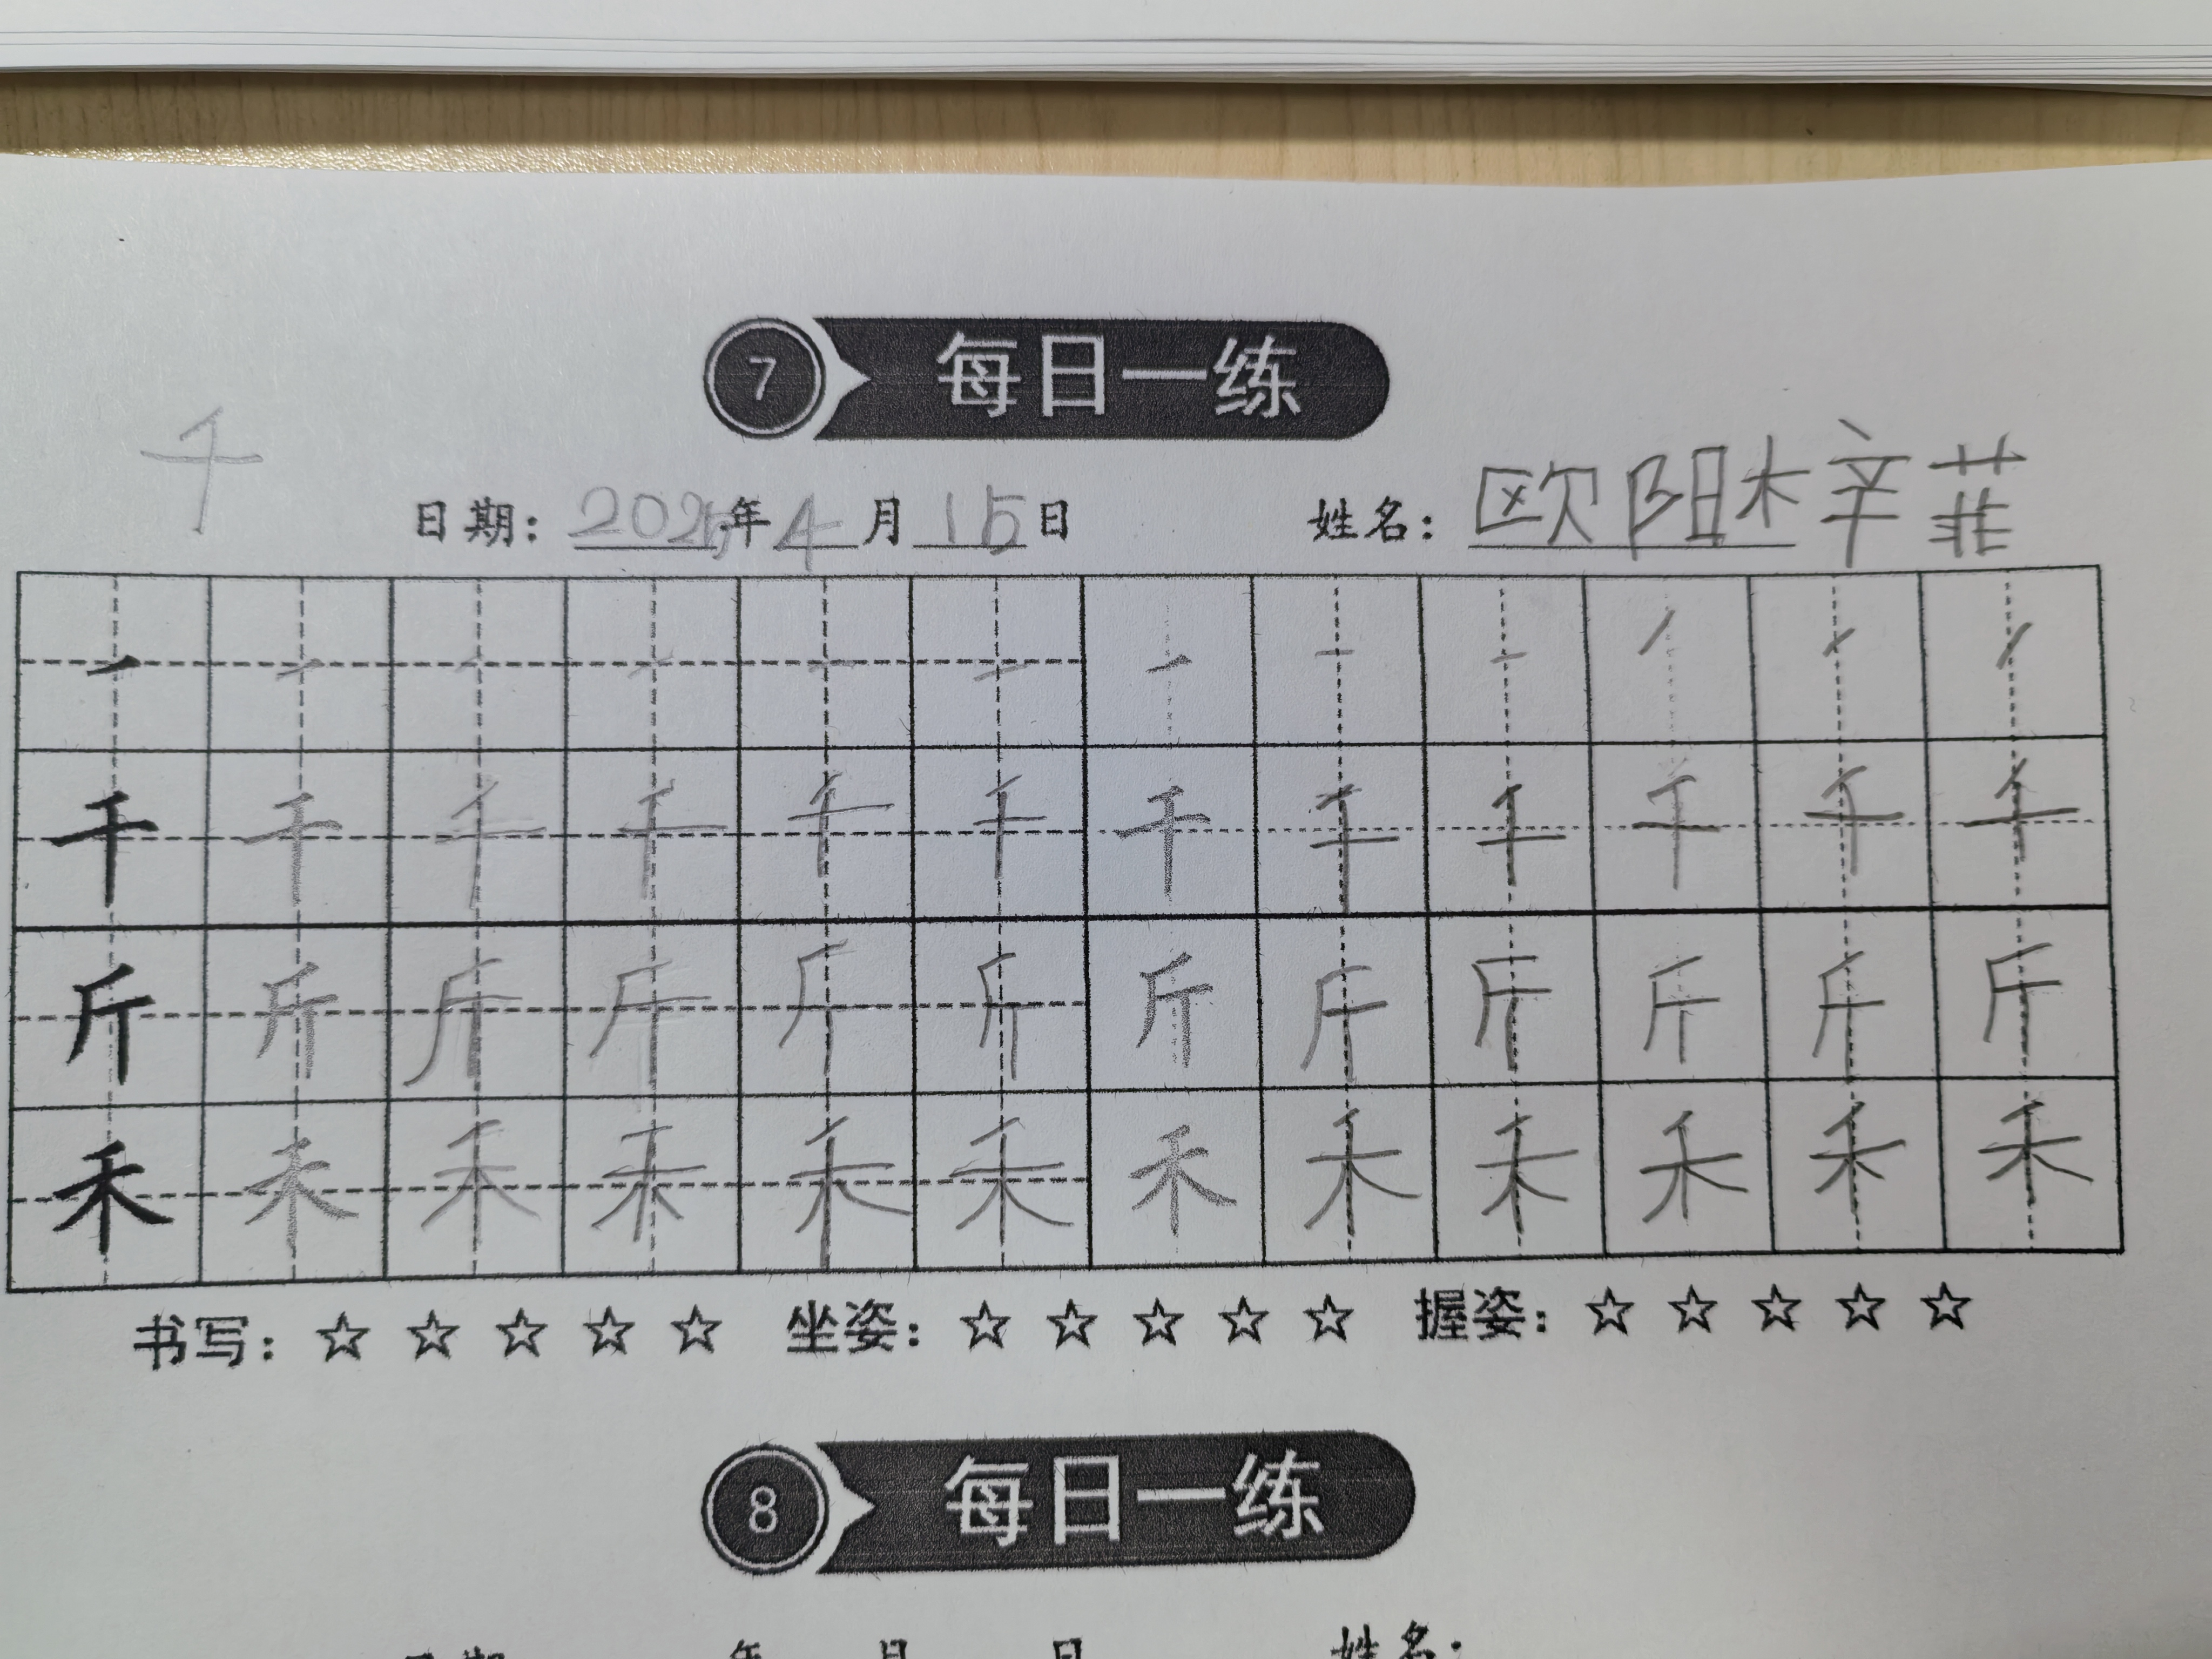 7 每日一练
千
日期：2025年4月15日 姓名：欧阳梓菲
千 千 千 千 千 千 千 千 千 千 千 千
斤 斤 斤 斤 斤 斤 斤 斤 斤 斤 斤 斤
禾 禾 禾 禾 禾 禾 禾 禾 禾 禾 禾 禾
书写：☆ ☆ ☆ ☆ ☆ 坐姿：☆ ☆ ☆ ☆ ☆ 握姿：☆ ☆ ☆ ☆ ☆
8 每日一练
日期 年 月 日 姓名：